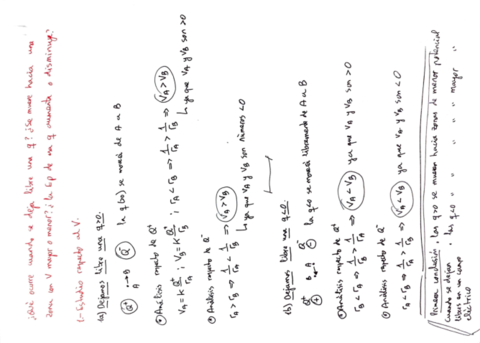 ¿Qué ocurre cuando se deja libre una q? ¿Se mueve hacia una
zona con V mayor o menor? ¿la Ep de esa q aumenta o disminuye?
1.- Estudio respecto al V.
(a) Dejamos libre una q>0.
Q⁺ A → B Q⁻ la q(+) se moverá de A a B
Análisis respecto de Q⁺
V_A = K Q⁺/r_A ; V_B = K Q⁺/r_B ; r_A < r_B ⇒ 1/r_A > 1/r_B ⇒ V_A > V_B
ya que V_A y V_B son >0
Análisis respecto de Q⁻
r_A > r_B ⇒ 1/r_A < 1/r_B ⇒ V_A > V_B
ya que V_A y V_B son números <0
(b) Dejamos libre una q<0.
Q⁺ B ← A Q⁻ la q<0 se moverá libremente de A a B
Análisis respecto de Q⁺
r_B < r_A ⇒ 1/r_B > 1/r_A ⇒ V_A < V_B ya que V_A y V_B son >0
Análisis respecto de Q⁻
r_A < r_B ⇒ 1/r_A > 1/r_B ⇒ V_A < V_B ya que V_A y V_B son <0
Primera conclusión. Las q>0 se mueven hacia zonas de menor potencial
Cuando se dejan . las q<0 " " " " mayor "
libres en un campo
eléctrico